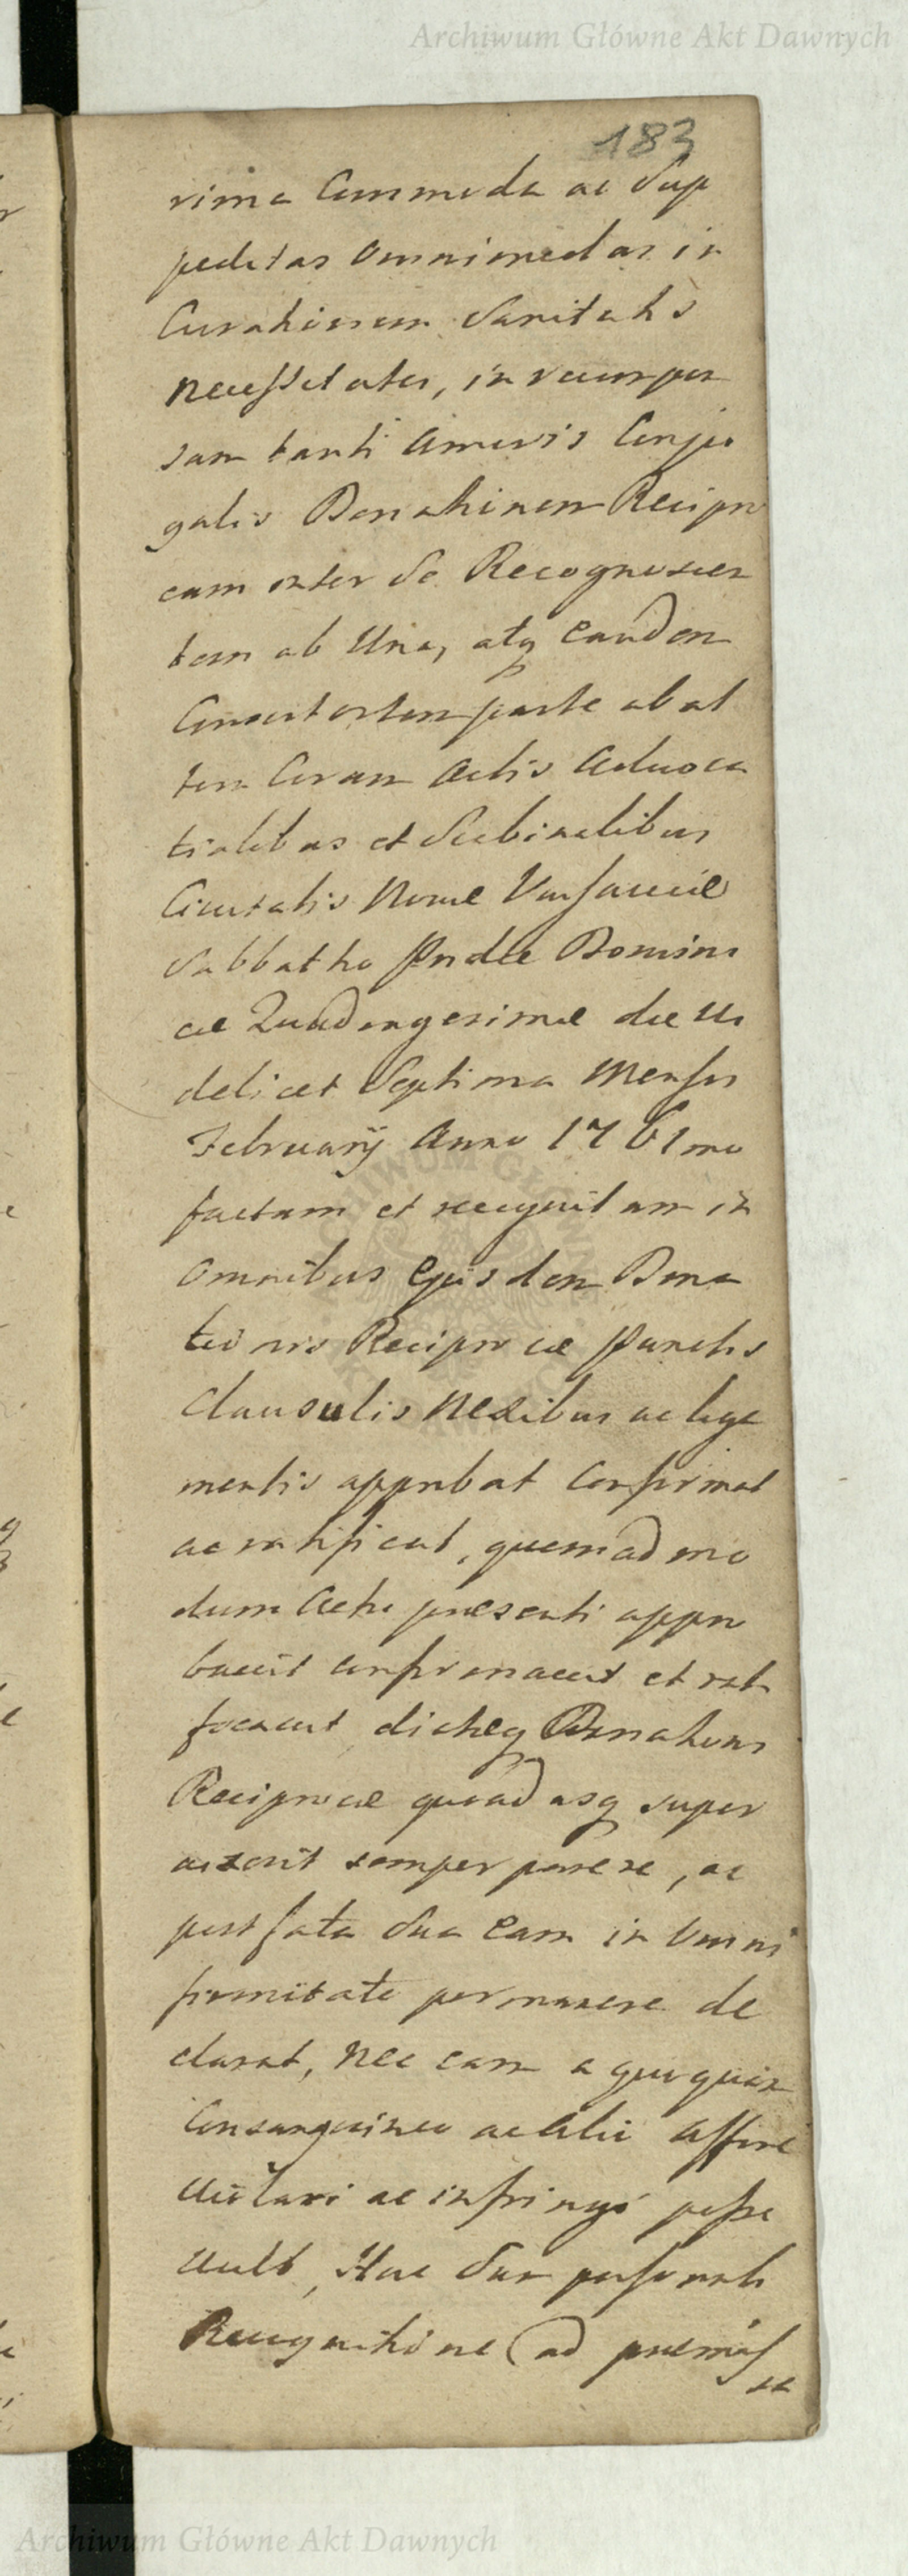 Archiwum Główne Akt Dawnych
183
rima Commoda ac Sup
peditas omnimodas in
Curationem Sanitatis
necessitates, in recompen
sam tanti Amoris Conju
galis Donationem Recipro
cam inter se Recognoscen
tem ab Una, atq eandem
Consortem parte ab al
tera Coram Actis Advoca
tialibus et Scabinalibus
Civitatis Novae Varsaviae
Sabbatho Pridie Domini
cae Quadragesimae die Vi
delicet Septima Mensis
February Anno 1761mo
factam et recognitam in
Omnibus Ejusdem Dona
tionis Reciprocae Punctis
Clausulis Nexibus ac liga
mentis approbat Confirmat
ac ratificat, quemadmo
dum Actu praesenti appro
bavit confirmavit et rati
ficavit dictaeq Donationis
Reciprocae quoad usq super
vixerit semper parere, ac
post fata Sua Eam in Omni
firmitate permanere de
clarat, nec eam a quoquam
Consanguineo ac alio Affine
violari ac infringi posse
vult, Hac Sua personali
Recognitione ad praemiss
sa
Archiwum Główne Akt Dawnych